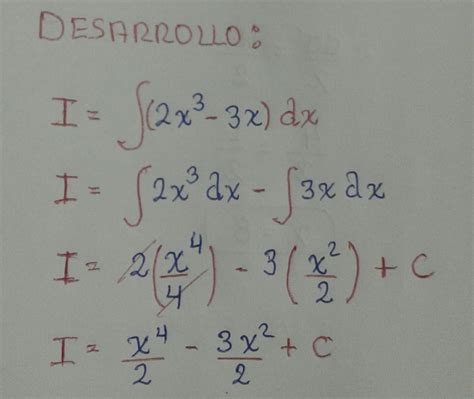 DESARROLLO:
I = ∫(2x³ - 3x) dx
I = ∫2x³ dx - ∫3x dx
I = 2(x⁴/4) - 3(x²/2) + C
I = x⁴/2 - 3x²/2 + C